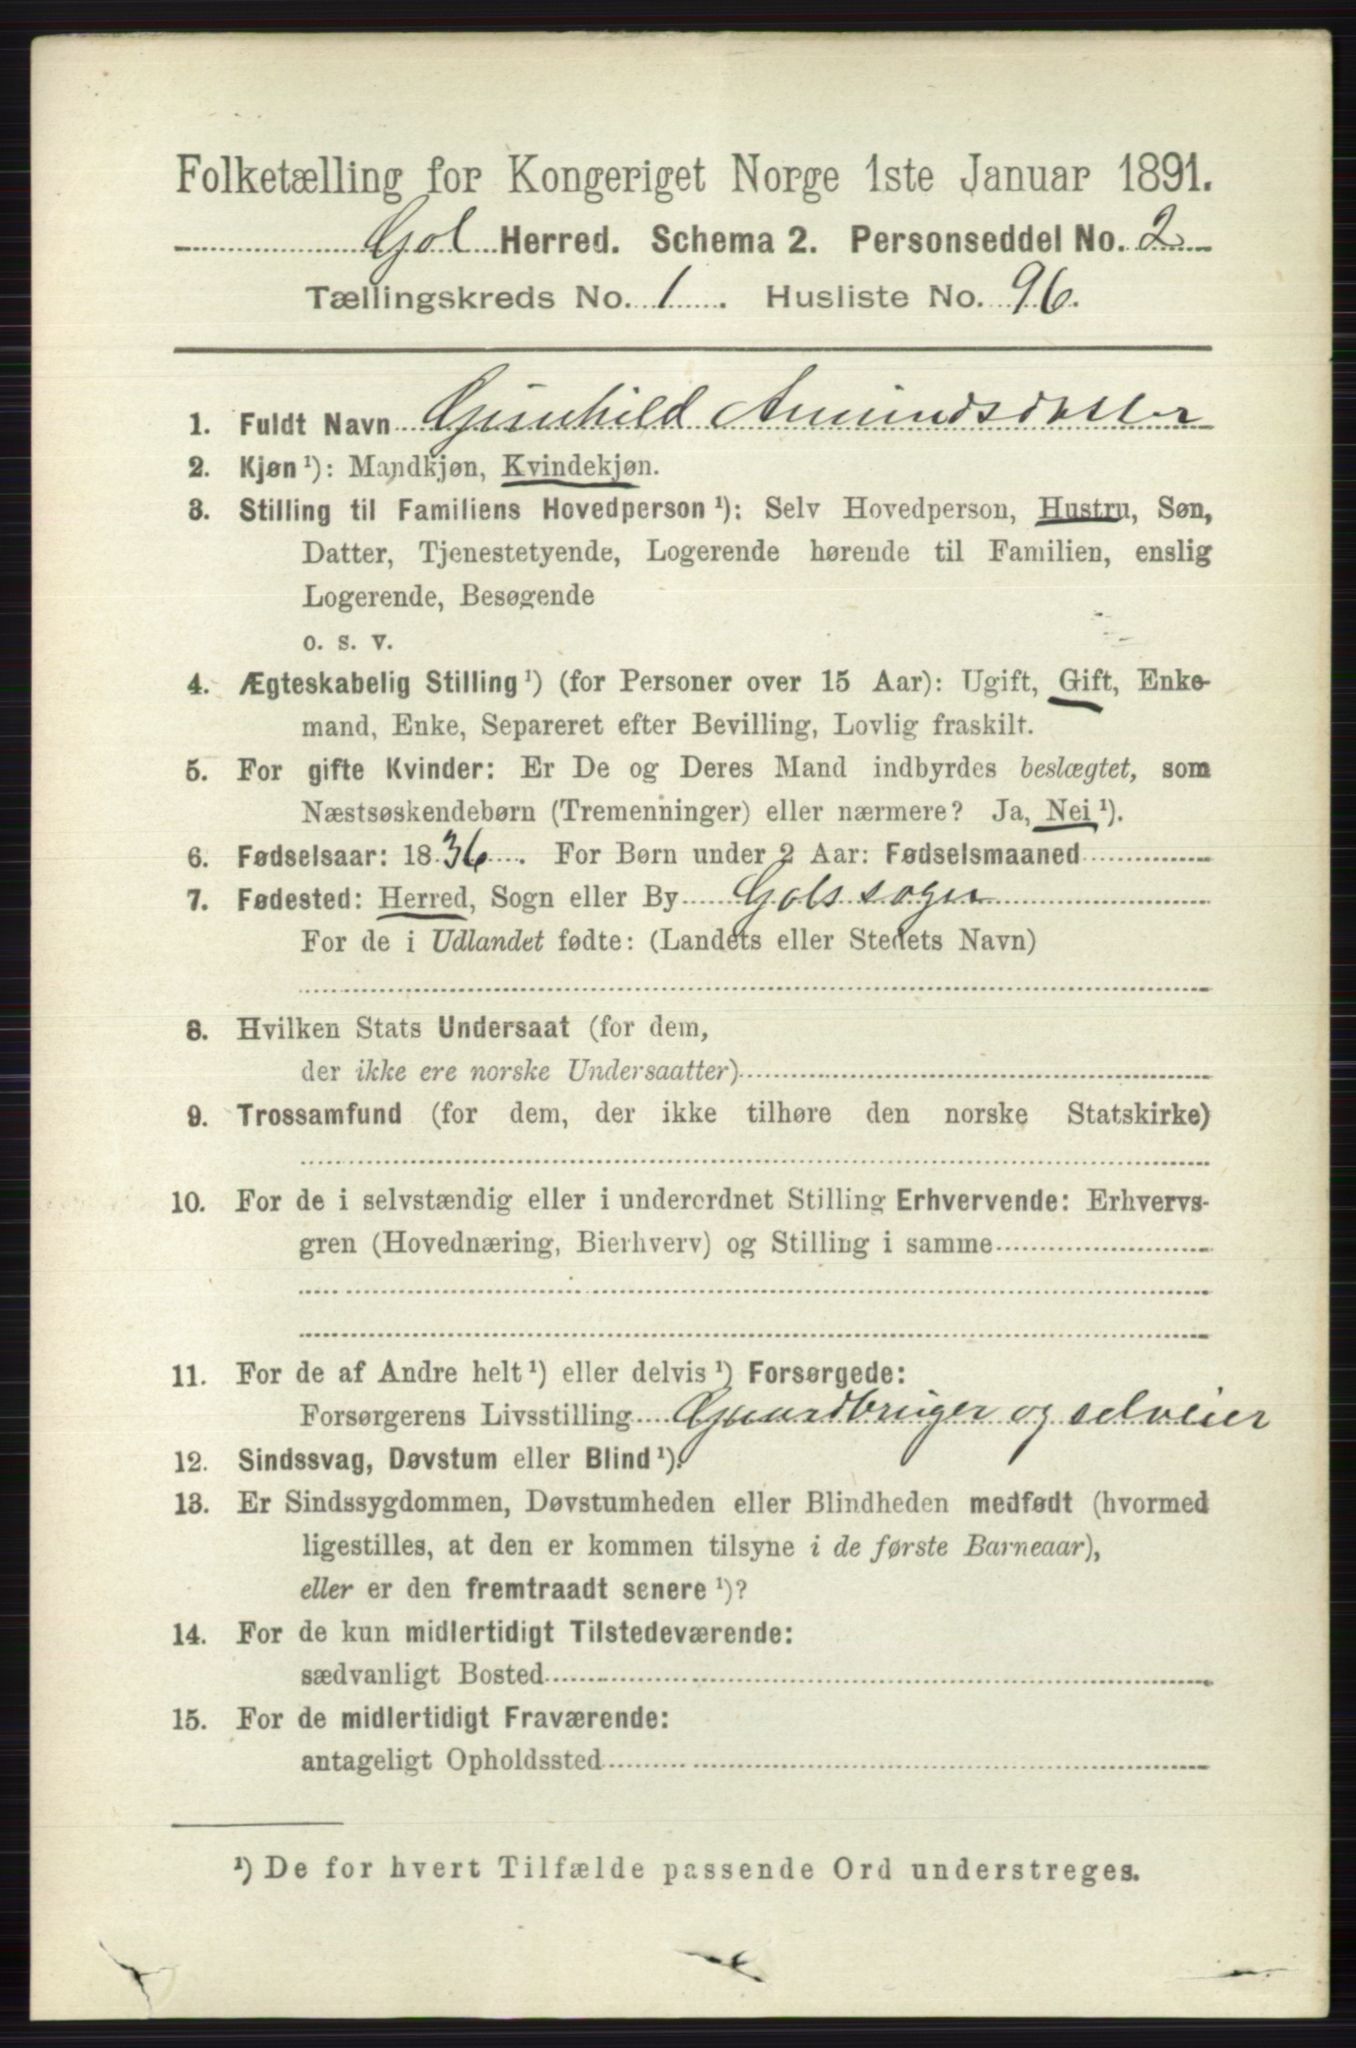 Folketælling for Kongeriget Norge 1ste Januar 1891.
Gol Herred. Schema 2. Personseddel No. 2
Tællingskreds No. 1. Husliste No. 96.
1. Fuldt Navn Gunhild Amundsdatter
2. Kjøn ¹): Mandkjøn, Kvindekjøn.
3. Stilling til Familiens Hovedperson ¹): Selv Hovedperson, Hustru, Søn,
Datter, Tjenestetyende, Logerende hørende til Familien, enslig
Logerende, Besøgende
o. s. v.
4. Ægteskabelig Stilling ¹) (for Personer over 15 Aar): Ugift, Gift, Enke-
mand, Enke, Separeret efter Bevilling, Lovlig fraskilt.
5. For gifte Kvinder: Er De og Deres Mand indbyrdes beslægtet, som
Næstsøskendebørn (Tremenninger) eller nærmere? Ja, Nei ¹).
6. Fødselsaar: 1836. For Børn under 2 Aar: Fødselsmaaned
7. Fødested: Herred, Sogn eller By Gols sogn
For de i Udlandet fødte: (Landets eller Stedets Navn)
8. Hvilken Stats Undersaat (for dem,
der ikke ere norske Undersaatter)
9. Trossamfund (for dem, der ikke tilhøre den norske Statskirke)
10. For de i selvstændig eller i underordnet Stilling Erhvervende: Erhvervs-
gren (Hovednæring, Bierhverv) og Stilling i samme
11. For de af Andre helt ¹) eller delvis ¹) Forsørgede:
Forsørgerens Livsstilling Gaardbruger og selveier
12. Sindssvag, Døvstum eller Blind ¹).
13. Er Sindssygdommen, Døvstumheden eller Blindheden medfødt (hvormed
ligestilles, at den er kommen tilsyne i de første Barneaar),
eller er den fremtraadt senere ¹)?
14. For de kun midlertidigt Tilstedeværende:
sædvanligt Bosted
15. For de midlertidigt Fraværende:
antageligt Opholdssted
¹) De for hvert Tilfælde passende Ord understreges.